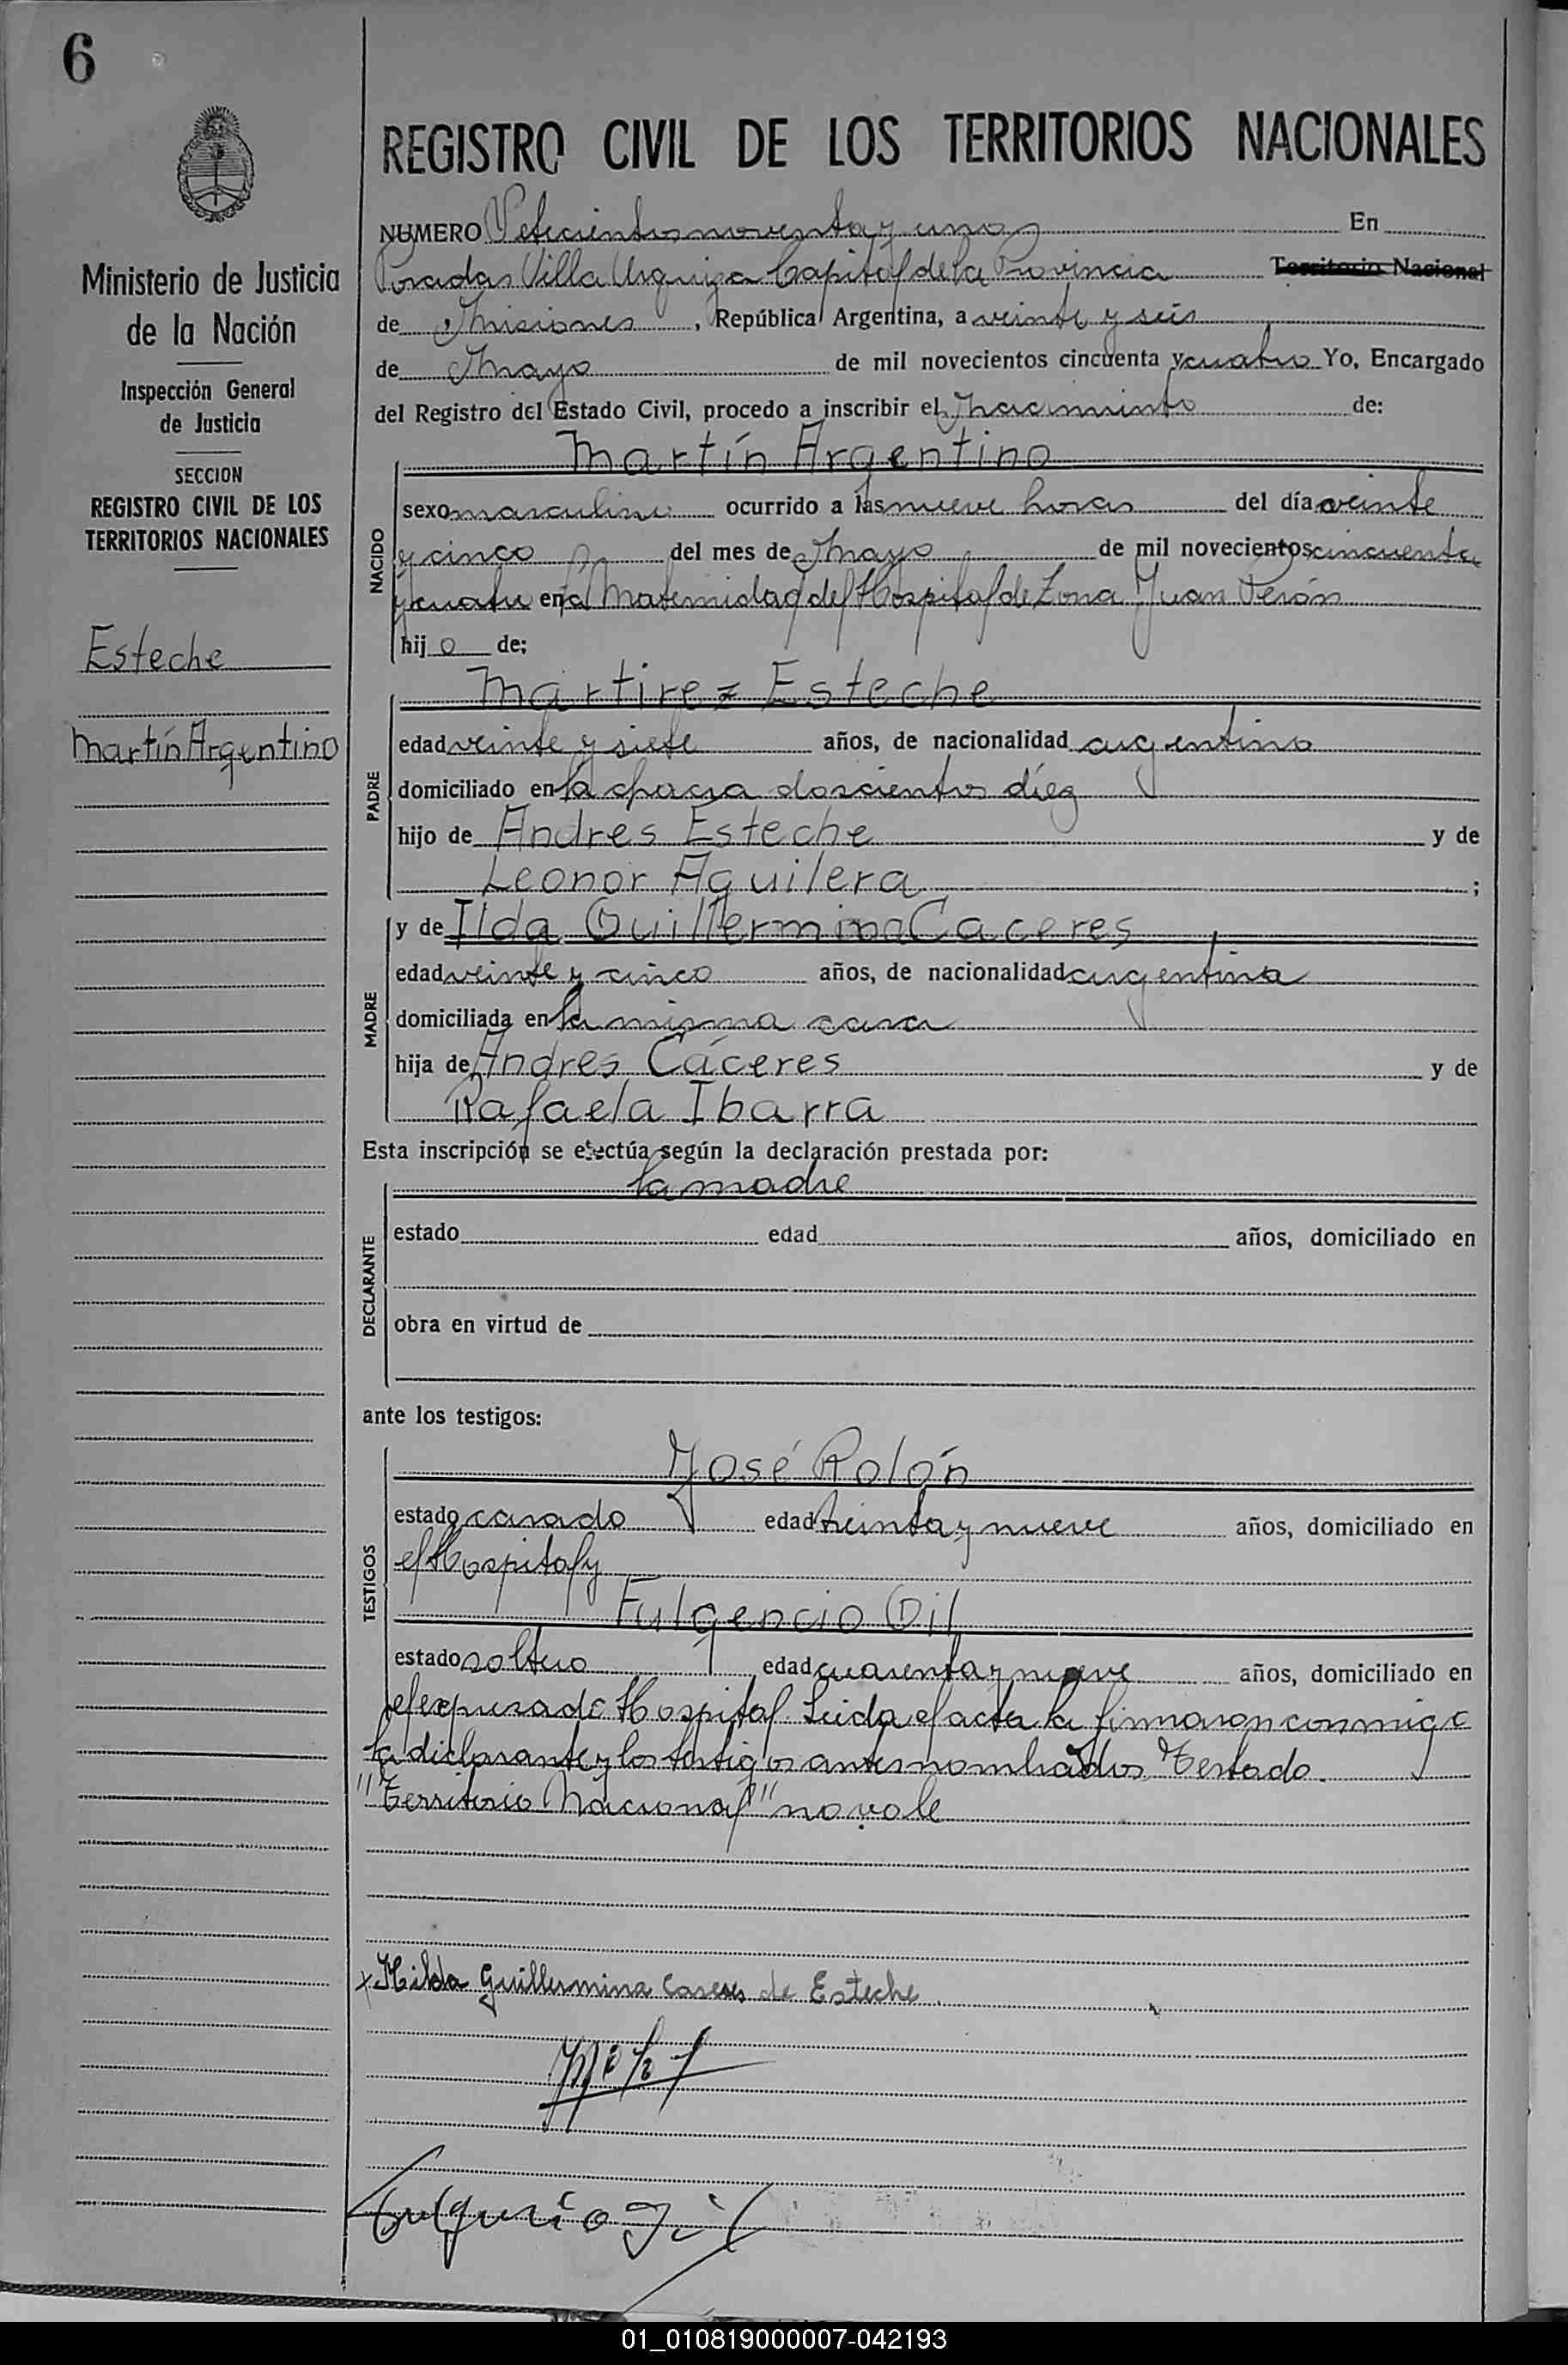 6
REGISTRO CIVIL DE LOS TERRITORIOS NACIONALES
Ministerio de Justicia
de la Nación
Inspección General
de Justicia
SECCION
REGISTRO CIVIL DE LOS
TERRITORIOS NACIONALES
Esteche
Martín Argentino
NUMERO Setecientos noventa y uno En
Posadas Villa Urquiza Capital de la Provincia Territorio Nacional
de Misiones, República Argentina, a veinte y seis
de Mayo de mil novecientos cincuenta y cuatro Yo, Encargado
del Registro del Estado Civil, procedo a inscribir el nacimiento de:
NACIDO
Martín Argentino
sexo masculino ocurrido a las nueve horas del día veinte
y cinco del mes de Mayo de mil novecientos cincuenta
y cuatro en la Maternidad del Hospital de Zona Juan Perón
hijo de;
PADRE
Martirez Esteche
edad veinte y siete años, de nacionalidad argentino
domiciliado en la chacra doscientos díez
hijo de Andres Esteche y de
Leonor Aguilera ;
MADRE
y de Ilda Guillermina Caceres
edad veinte y cinco años, de nacionalidad argentina
domiciliada en la misma casa
hija de Andres Cáceres y de
Rafaela Ibarra
Esta inscripción se efectúa según la declaración prestada por:
DECLARANTE
la madre
estado edad años, domiciliado en
obra en virtud de
ante los testigos:
TESTIGOS
José Rolón
estado casado edad treinta y nueve años, domiciliado en
el Hospital y
Fulgencio Gil
estado soltero edad cuarenta y nueve años, domiciliado en
el expresado Hospital. Leida el acta la firmaron conmigo
la declarante y los testigos antes nombrados. Testado
"Territorio Nacional" no vale
x Hilda Guillermina Caseres de Esteche
Fulgencio Gil
01_010819000007-042193